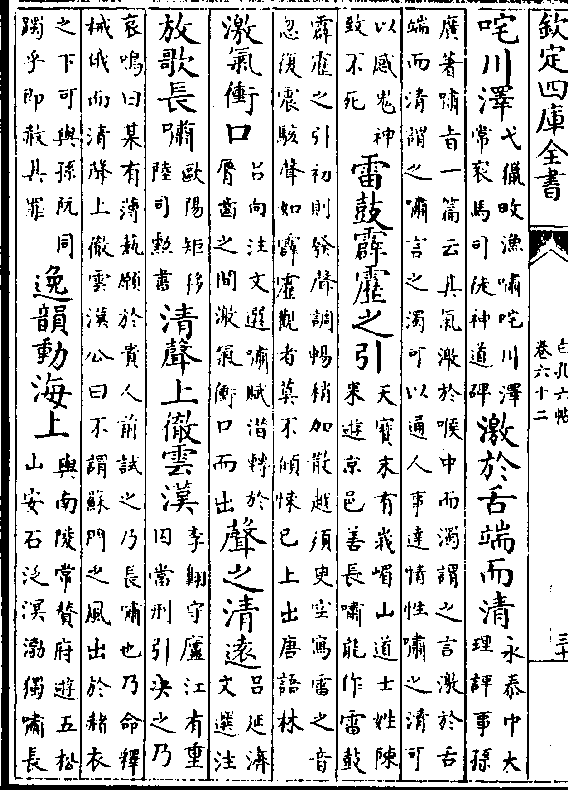 欽定四庫全書
白孔六帖
卷六十二
三十
咤川澤
弋獵畋漁嘯咤川澤
常袞馬司徒神道碑
激於舌端而清
永泰中大
理評事孫
廣著嘯旨一篇云其氣激於喉中而濁謂之言激於舌
端而清謂之嘯言之濁可以通人事達情性嘯之清可
以感鬼神
致不死
雷鼓霹靂之引
天寶末有峨嵋山道士姓陳
來遊京邑善長嘯能作雷鼓
霹靂之引初則發聲調暢稍加散越須臾空寫雷之音
忽復震駭聲如霹靂觀者莫不傾悚已上出唐語林
激氣衝口
呂向注文選嘯賦潜轉於
脣齒之間激氣衝口而出
聲之清遠
呂延濟
文選注
放歌長嘯
歐陽矩移
陸司勲書
清聲上徹雲漢
李翺守廬江有重
囚當刑引決之乃
哀鳴曰某有薄藝願於貴人前試之乃長嘯也乃命釋
械械而清聲上徹雲漢公曰不謂蘇門之風出於赭衣
之下可與孫阮同
躅乎即赦其罪
逸韻動海上
與南陵常贊府遊五松
山安石泛溟渤獨嘯長